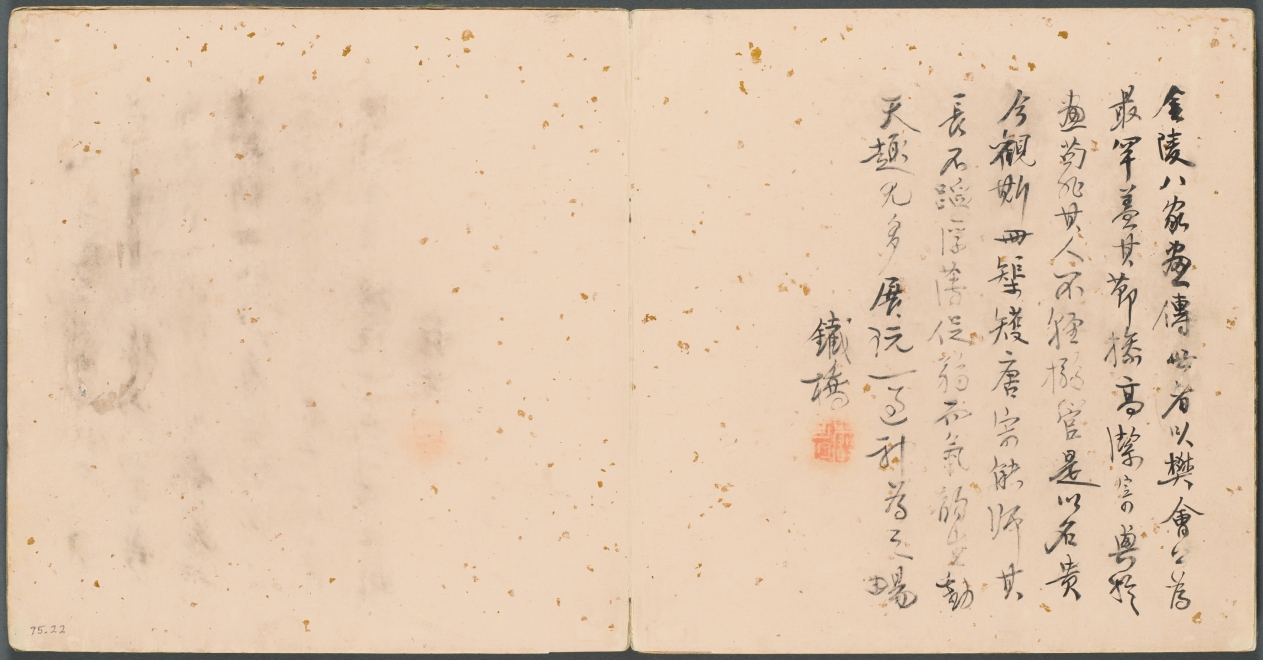 金陵八家畫傳世者以樊會公為
最罕蓋其節操高潔寄興於
畫苟非其人不輕搦管是以名貴
今觀斯冊榘矱唐宋能師其
長不蹈浮薄促弱而氣韻生動
天趣尤多展玩一過神為之暢
鐵橋
75.22